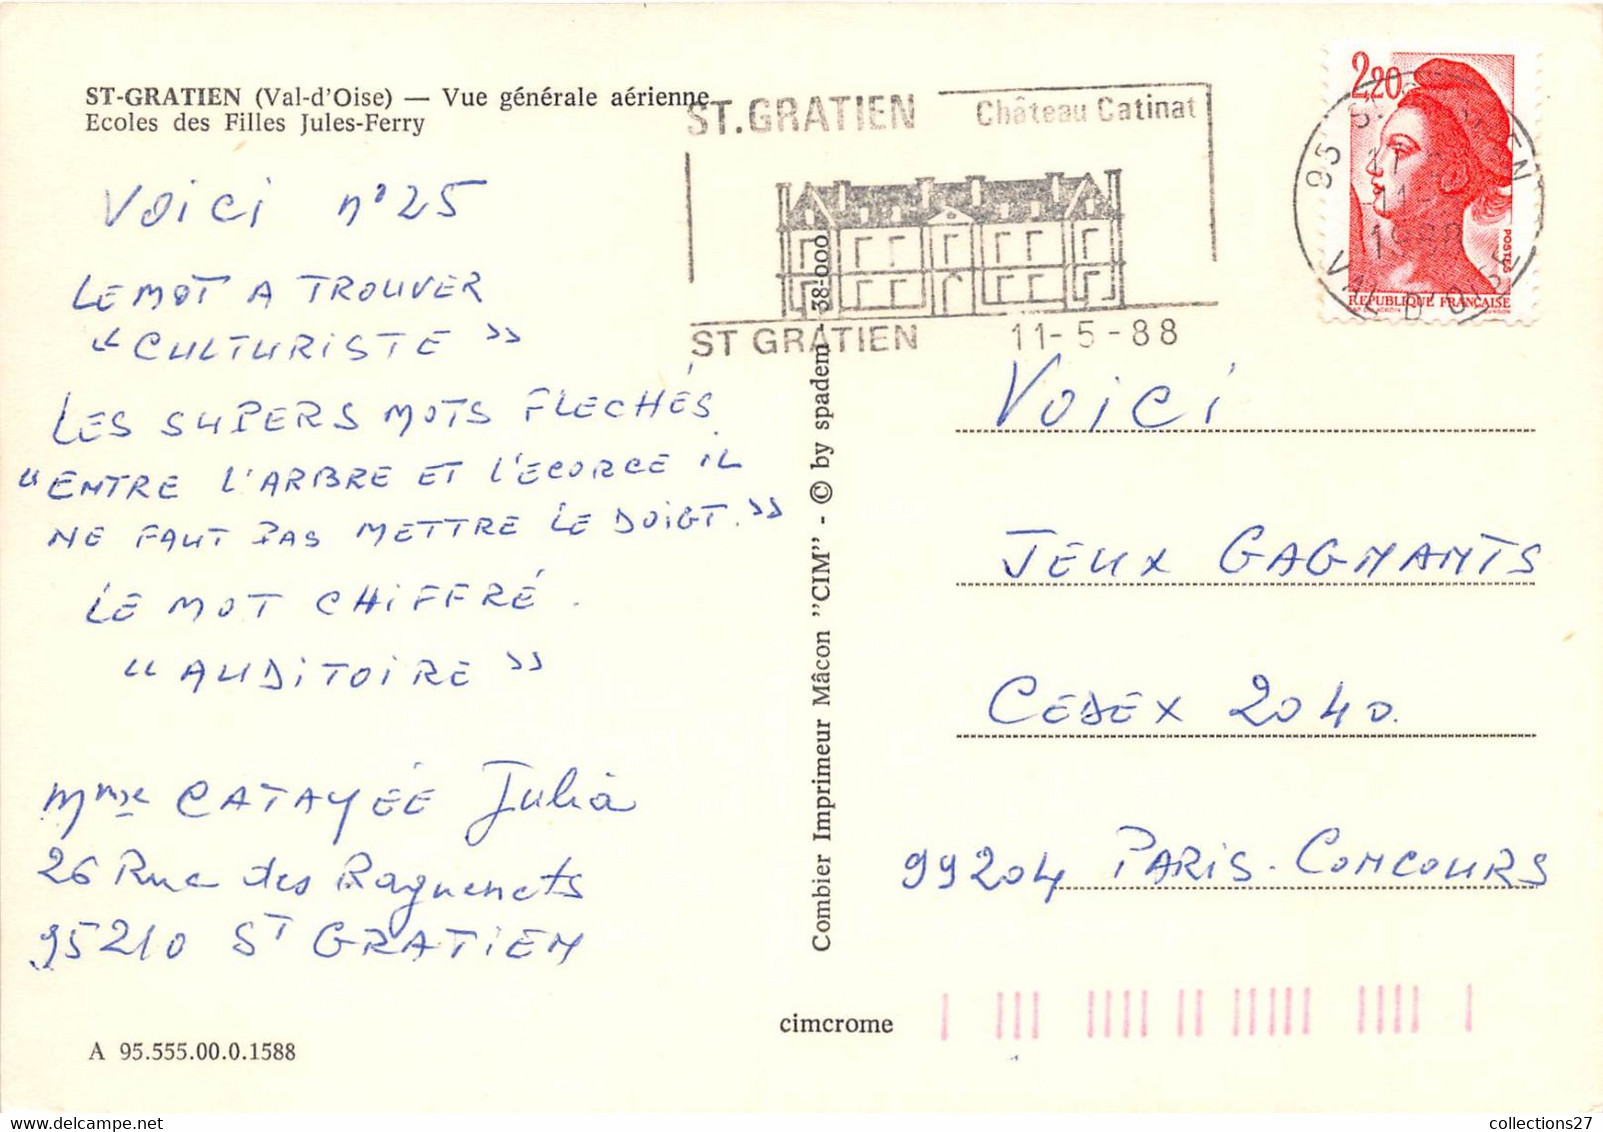 ST-GRATIEN (Val-d'Oise) — Vue générale aérienne
Ecoles des Filles Jules-Ferry
VOICI n° 25
LE MOT A TROUVER
" CULTURISTE "
LES SUPERS MOTS FLECHÉS
" ENTRE L'ARBRE ET L'ECORCE IL
NE FAUT PAS METTRE LE DOIGT. "
LE MOT CHIFFRÉ.
" AUDITOIRE "
Mme CATAYÉE Julia
26 Rue des Raguenets
95210 ST GRATIEN
A 95.555.00.0.1588
Combier Imprimeur Mâcon "CIM" - © by spadem - 38-000
cimcrome
ST. GRATIEN Château Catinat
ST GRATIEN 11-5-88
2,20
POSTES
REPUBLIQUE FRANÇAISE
95 ST GRATIEN
VAL D'OISE
1988
Voici
JEUX GAGNANTS
CEDEX 2040.
99204 PARIS-CONCOURS
collections27